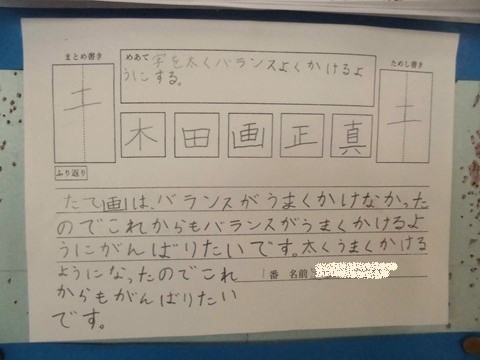 まとめ書き
土
めあて 字を太くバランスよくかけるよ
うにする。
ためし書き
土
木 田 画 正 真
ふり返り
たて画は、バランスがうまくかけなかった
のでこれからもバランスがうまくかけるよ
うにがんばりたいです。太くうまくかける
ようになったのでこれ
からもがんばりたい
です。
番 名前